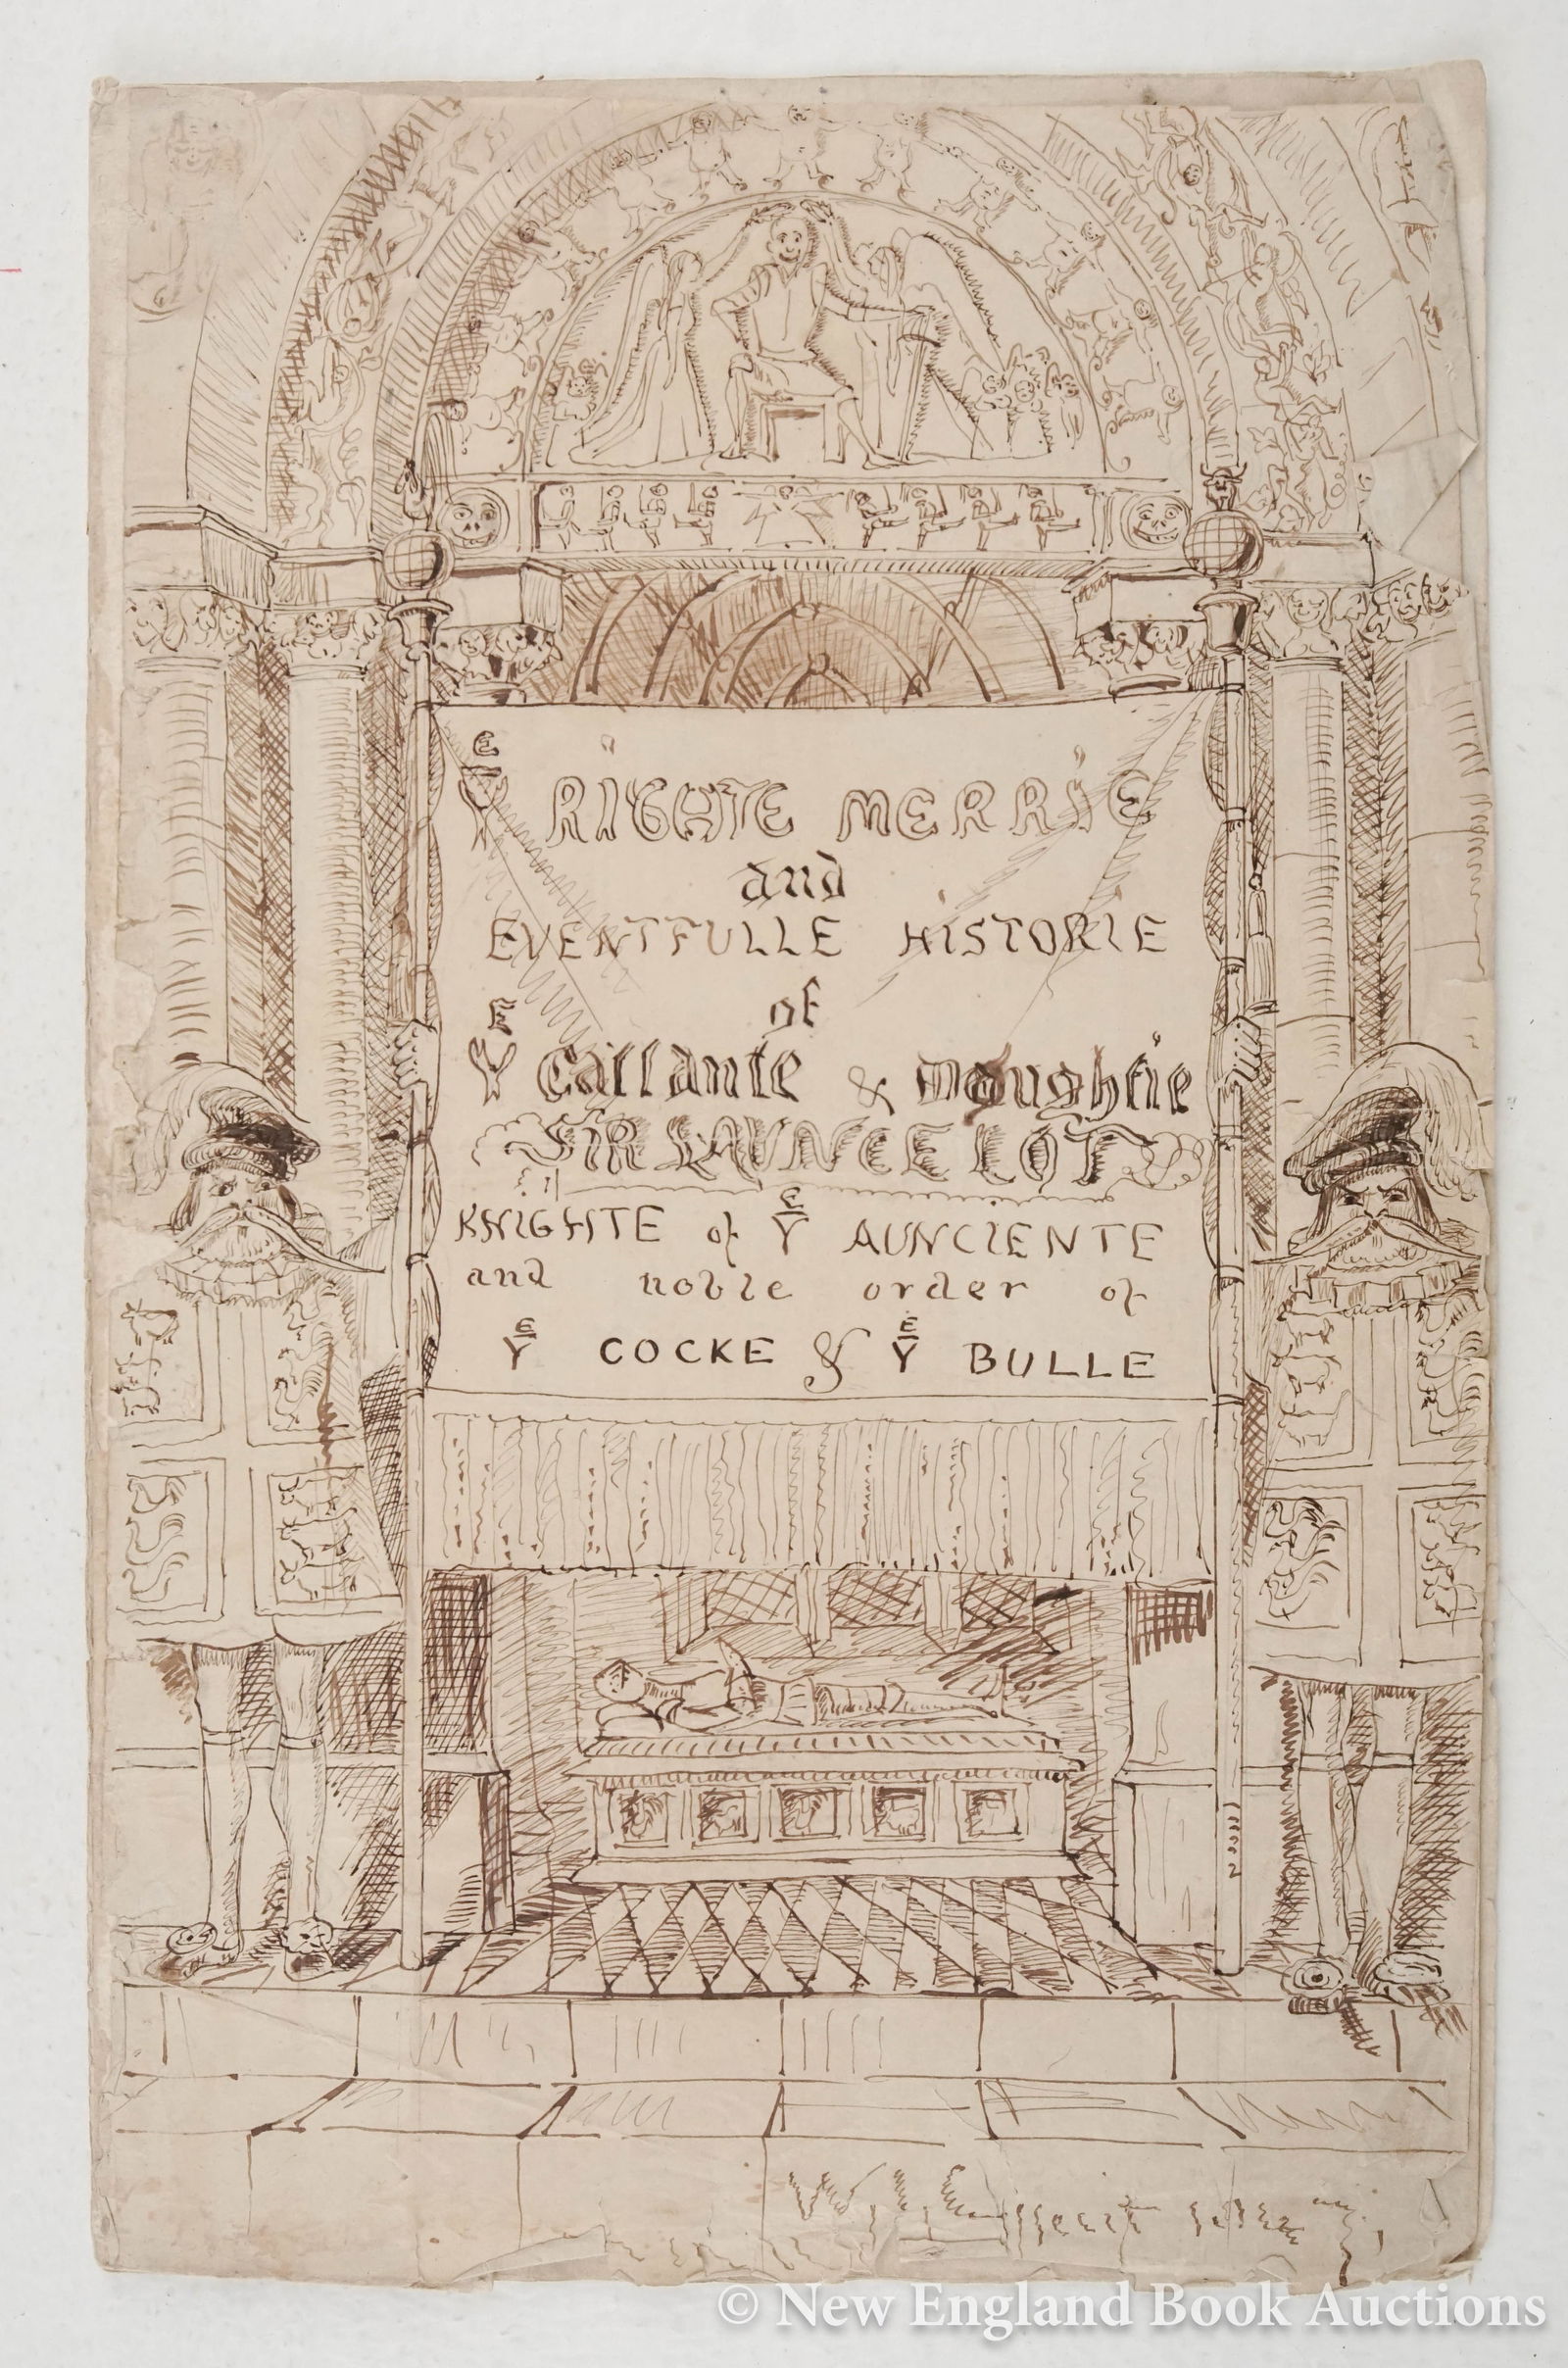 Yᴱ RIGHTE MERRIE
and
EVENTFULLE HISTORIE
of
Yᴱ Gallante & Doughtie
SIR LAUNCELOT
KNIGHTE of Yᴱ AUNCIENTE
and noble order of
Yᴱ COCKE & Yᴱ BULLE
© New England Book Auctions